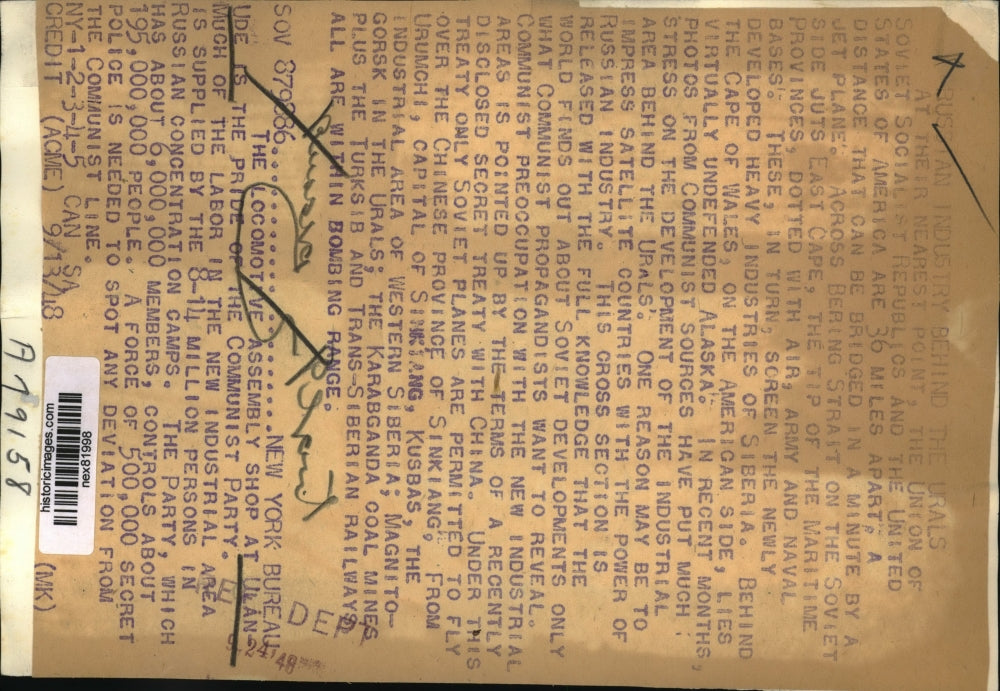 RUSSIAN INDUSTRY BEHIND THE URALS
AT THEIR NEAREST POINT, THE UNION OF
SOVIET SOCIALIST REPUBLICS AND THE UNITED
STATES OF AMERICA ARE 36 MILES APART, A
DISTANCE THAT CAN BE BRIDGED IN A MINUTE BY A
JET PLANE. ACROSS BERING STRAIT ON THE SOVIET
SIDE JUTS EAST CAPE, THE TIP OF THE MARITIME
PROVINCES, DOTTED WITH AIR, ARMY AND NAVAL
BASES. THESE, IN TURN, SCREEN THE NEWLY
DEVELOPED HEAVY INDUSTRIES OF SIBERIA. BEHIND
THE CAPE OF WALES, ON THE AMERICAN SIDE, LIES
VIRTUALLY UNDEFENDED ALASKA. IN RECENT MONTHS,
PHOTOS FROM COMMUNIST SOURCES HAVE PUT MUCH
STRESS ON THE DEVELOPMENT OF THE INDUSTRIAL
AREA BEHIND THE URALS. ONE REASON MAY BE TO
IMPRESS SATELLITE COUNTRIES WITH THE POWER OF
RUSSIAN INDUSTRY. THIS CROSS SECTION IS
RELEASED WITH THE FULL KNOWLEDGE THAT THE
WORLD FINDS OUT ABOUT SOVIET DEVELOPMENTS ONLY
WHAT COMMUNIST PROPAGANDISTS WANT TO REVEAL.
COMMUNIST PREOCCUPATION WITH THE NEW INDUSTRIAL
AREAS IS POINTED UP BY THE TERMS OF A RECENTLY
DISCLOSED SECRET TREATY WITH CHINA. UNDER THIS
TREATY ONLY SOVIET PLANES ARE PERMITTED TO FLY
OVER THE CHINESE PROVINCE OF SINKIANG, FROM
URUMCHI, CAPITAL OF SINKIANG, KUSBAS, THE
INDUSTRIAL AREA OF WESTERN SIBERIA; MAGNITO-
GORSK IN THE URALS; THE KARABGANDA COAL MINES
PLUS THE TURKSIB AND TRANS-SIBERIAN RAILWAYS
ALL ARE WITHIN BOMBING RANGE.
SOV 879286..............NEW YORK BUREAU
THE LOCOMOTIVE ASSEMBLY SHOP AT ULAN-
UDE IS THE PRIDE OF THE COMMUNIST PARTY.
MUCH OF THE LABOR IN THE NEW INDUSTRIAL AREA
IS SUPPLIED BY THE 8-14 MILLION PERSONS IN
RUSSIAN CONCENTRATION CAMPS. THE PARTY, WHICH
HAS ABOUT 6,000,000 MEMBERS, CONTROLS ABOUT
195,000,000 PEOPLE. A FORCE OF 500,000 SECRET
POLICE IS NEEDED TO SPOT ANY DEVIATION FROM
THE COMMUNIST LINE.
NY-1-2-3-4-5 CAN SA
CREDIT (ACME) 9/13/48 (MK)
DEPT
A79158
historicimages.com
nex81998